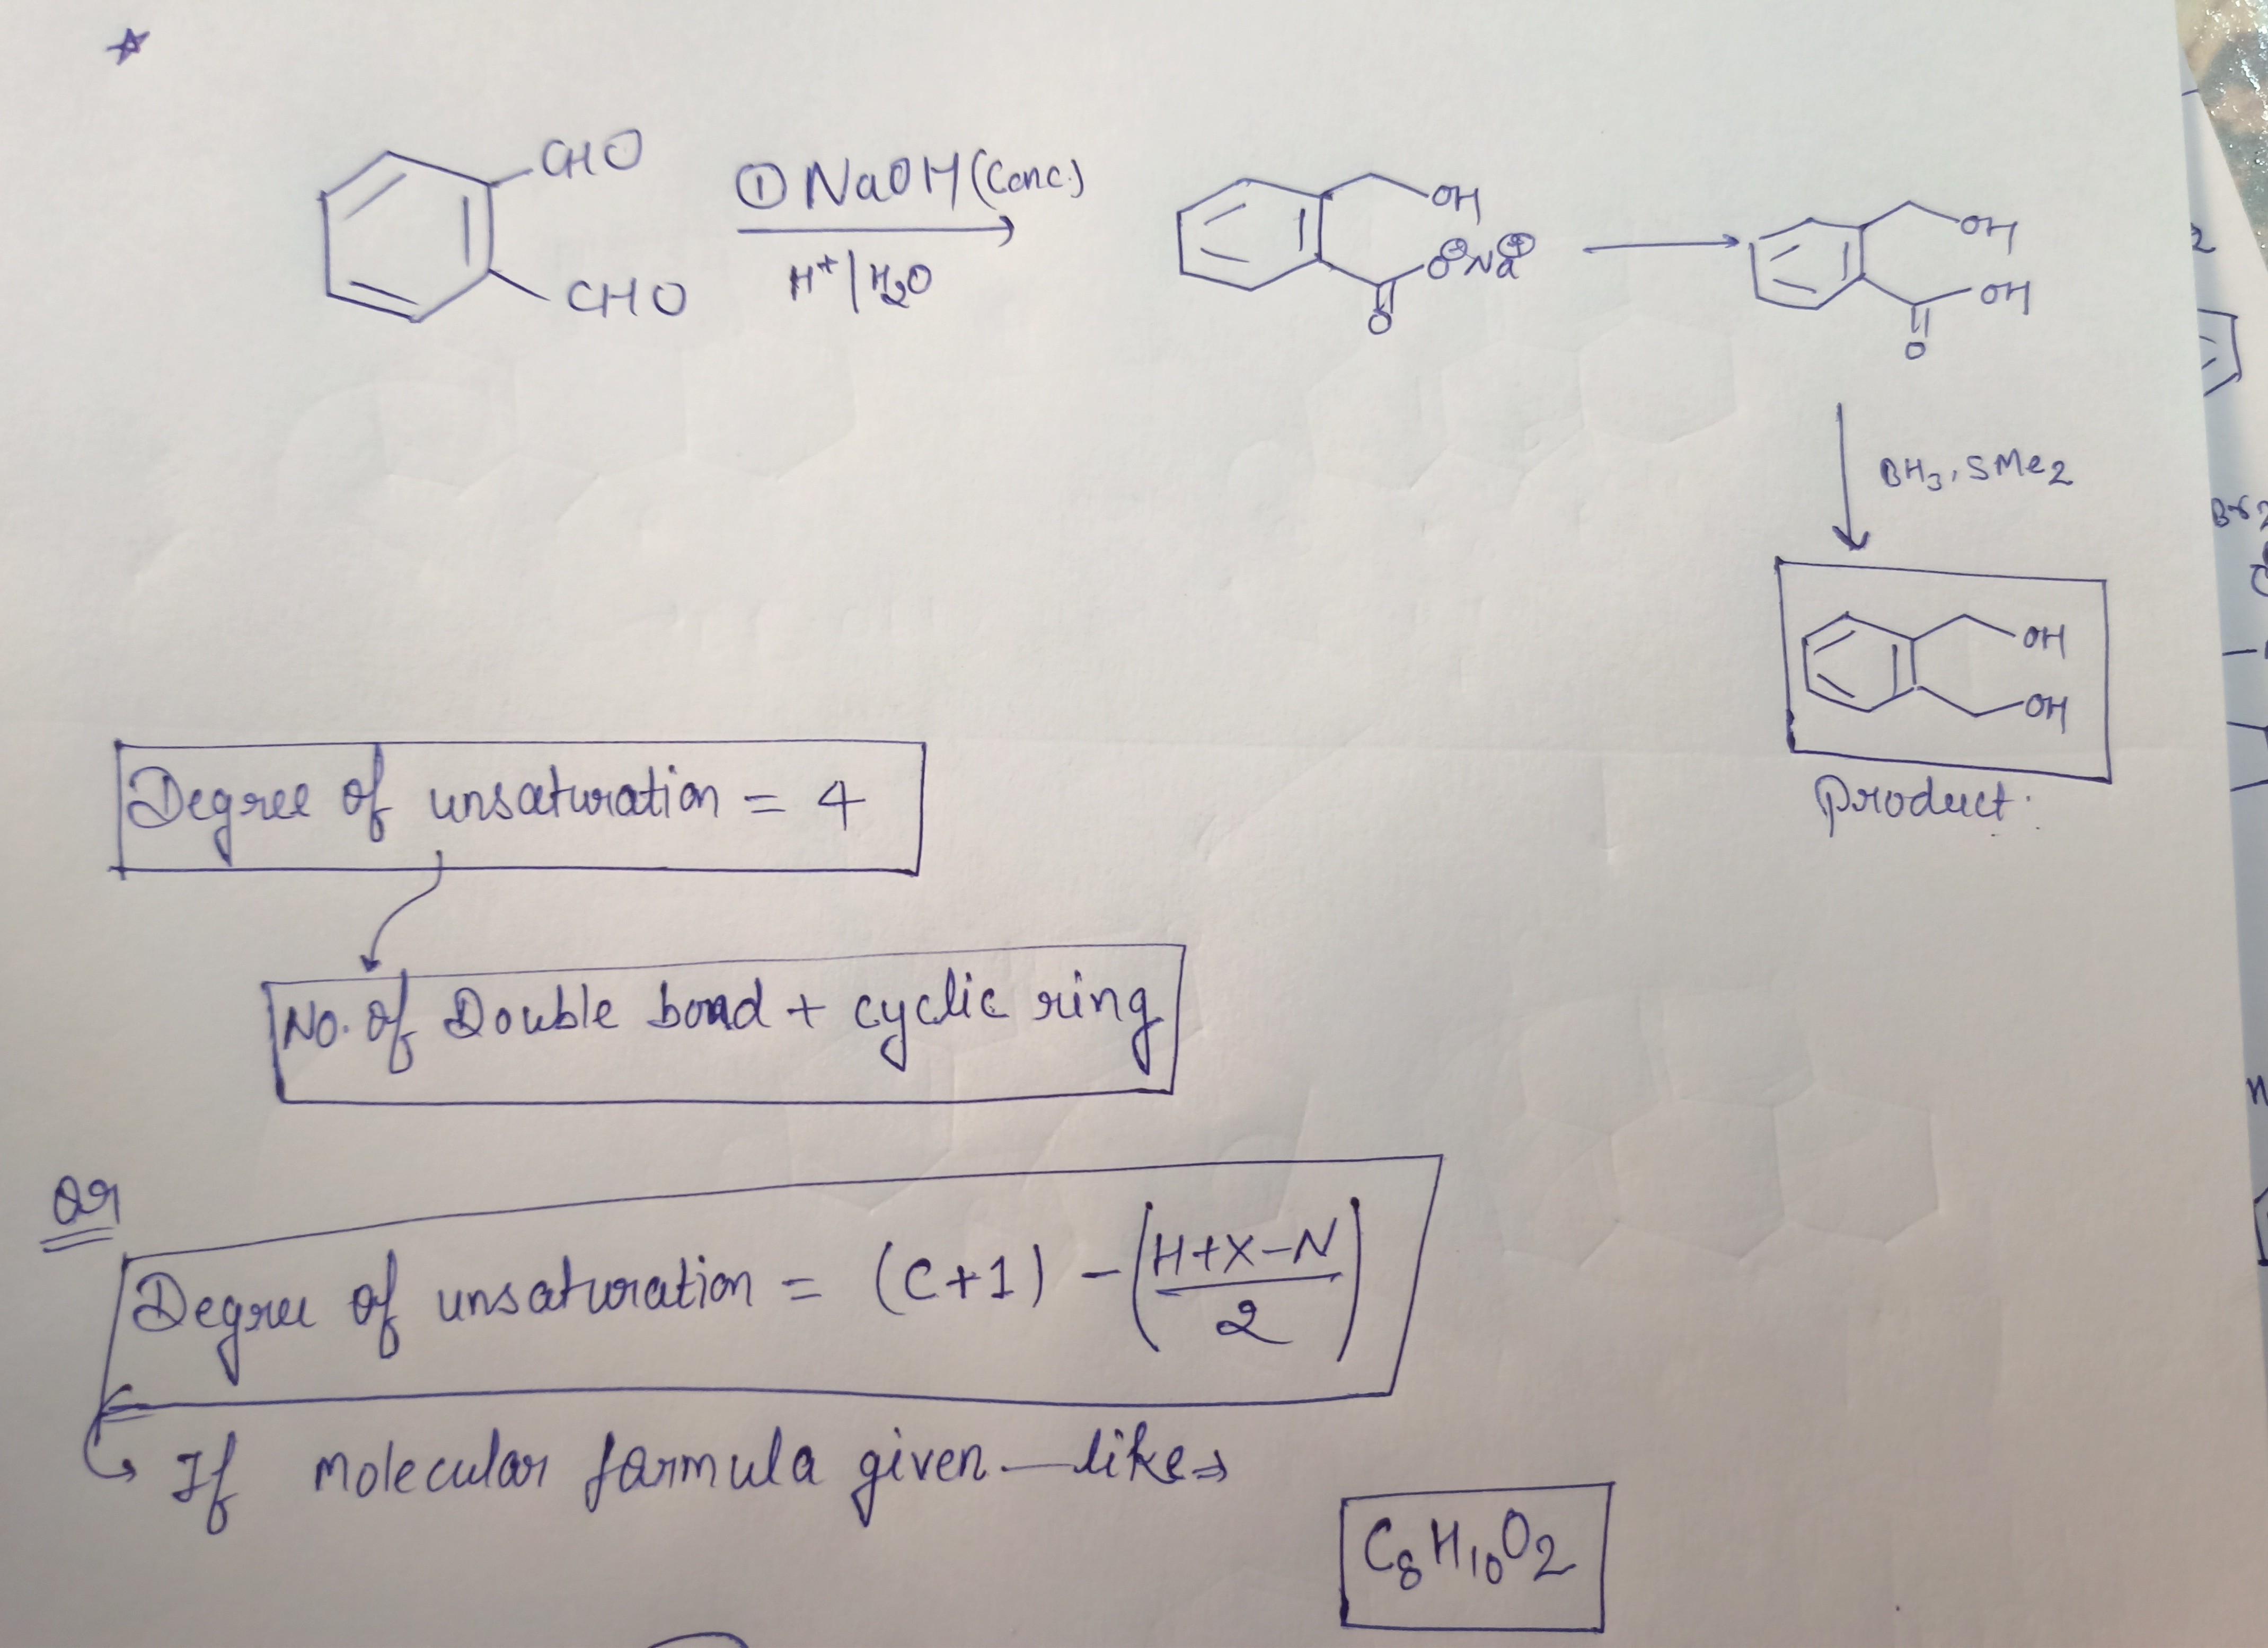 CHO
① NaOH (Conc.)
CHO
H⁺/H₂O
OH
O⊖Na⊕
O
OH
OH
O
BH₃, SMe₂
OH
OH
Product.
Degree of unsaturation = 4
No. of Double bond + cyclic ring
or
Degree of unsaturation = (C+1) - (H+X-N / 2)
If molecular formula given — like ⇒
C₈H₁₀O₂
2
Br₂